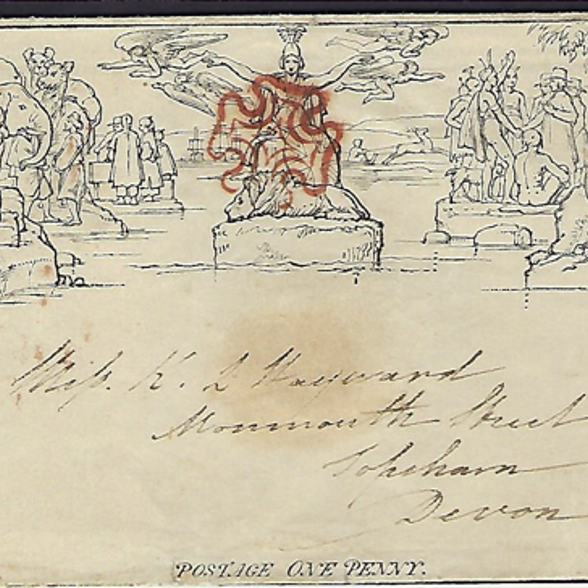 Miss. K. L Hayward
Monmouth Street
Topsham
Devon
POSTAGE ONE PENNY.